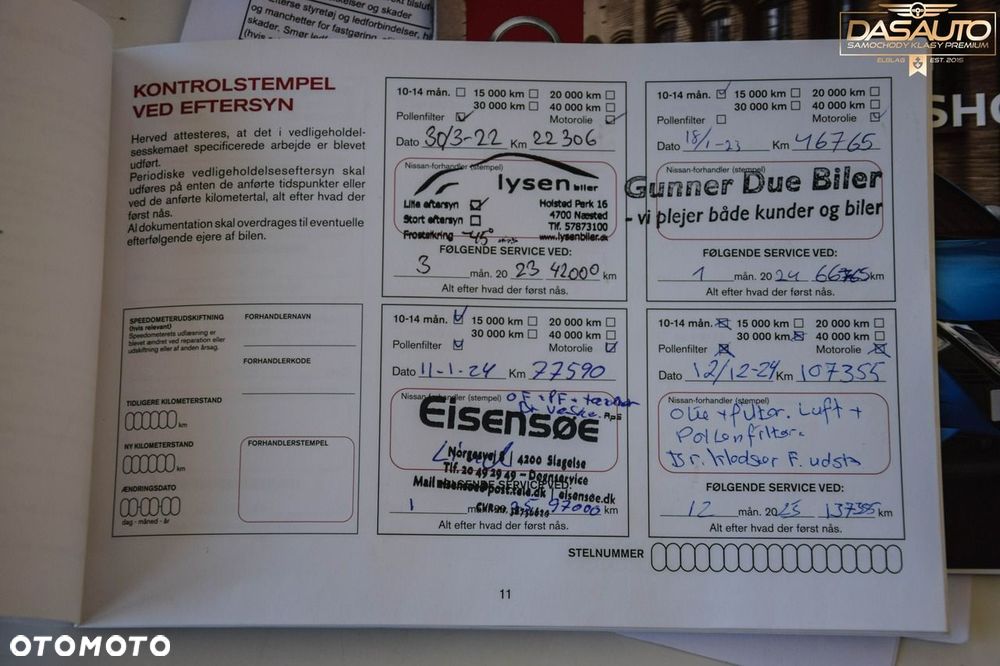 Efterse styretøj og ledforbindelser,
og manchetter for fastgøring,
skader. Smør
DASAUTO
SAMOCHODY KLASY PREMIUM
ELBLĄG EST. 2015
SHO
KONTROLSTEMPEL
VED EFTERSYN
Herved attesteres, at det i vedligeholdel-
sesskemaet specificerede arbejde er blevet
udført.
Periodiske vedligeholdelseseftersyn skal
udføres på enten de anførte tidspunkter eller
ved de anførte kilometertal, alt efter hvad der
først nås.
Al dokumentation skal overdrages til eventuelle
efterfølgende ejere af bilen.
10-14 mån. 15 000 km 20 000 km
30 000 km 40 000 km
Pollenfilter Motorolie
Dato 30/3-22 Km 22306
Nissan-forhandler (stempel)
lysen biler
Lille eftersyn Holsted Perk 16
Stort eftersyn 4700 Næsted
Frostsikring -45° Tlf. 57873100
www.lysenbiler.dk
FØLGENDE SERVICE VED:
3 mån. 20 23 42000 km
Alt efter hvad der først nås.
10-14 mån. 15 000 km 20 000 km
30 000 km 40 000 km
Pollenfilter Motorolie
Dato 18/1-23 Km 46765
Nissan-forhandler (stempel)
Gunner Due Biler
- vi plejer både kunder og biler
FØLGENDE SERVICE VED:
1 mån. 20 24 66765 km
Alt efter hvad der først nås.
SPEEDOMETERUDSKIFTNING
(hvis relevant)
Speedometerets udlæsning er
blevet ændret ved reparation eller
udskiftning af anden årsag.
FORHANDLERNAVN
FORHANDLERKODE
TIDLIGERE KILOMETERSTAND
km
NY KILOMETERSTAND
km
ÆNDRINGSDATO
dag - måned - år
FORHANDLERSTEMPEL
10-14 mån. 15 000 km 20 000 km
30 000 km 40 000 km
Pollenfilter Motorolie
Dato 11-1-24 Km 77590
Nissan-forhandler (stempel)
OF + PF +
Eisensøe ApS
Norgesvej 4200 Slagelse
Tlf. 20 49 29 49 - Døgnservice
Mail eisensoe@post.tele.dk | eisensøe.dk
FØLGENDE SERVICE VED:
1 mån. 20 25 97000 km
Alt efter hvad der først nås.
10-14 mån. 15 000 km 20 000 km
30 000 km 40 000 km
Pollenfilter Motorolie
Dato 12/12-24 Km 107355
Nissan-forhandler (stempel)
Olie + filter. Luft +
Pollenfilter.
FØLGENDE SERVICE VED:
12 mån. 20 25 137355 km
Alt efter hvad der først nås.
STELNUMMER
11
OTOMOTO